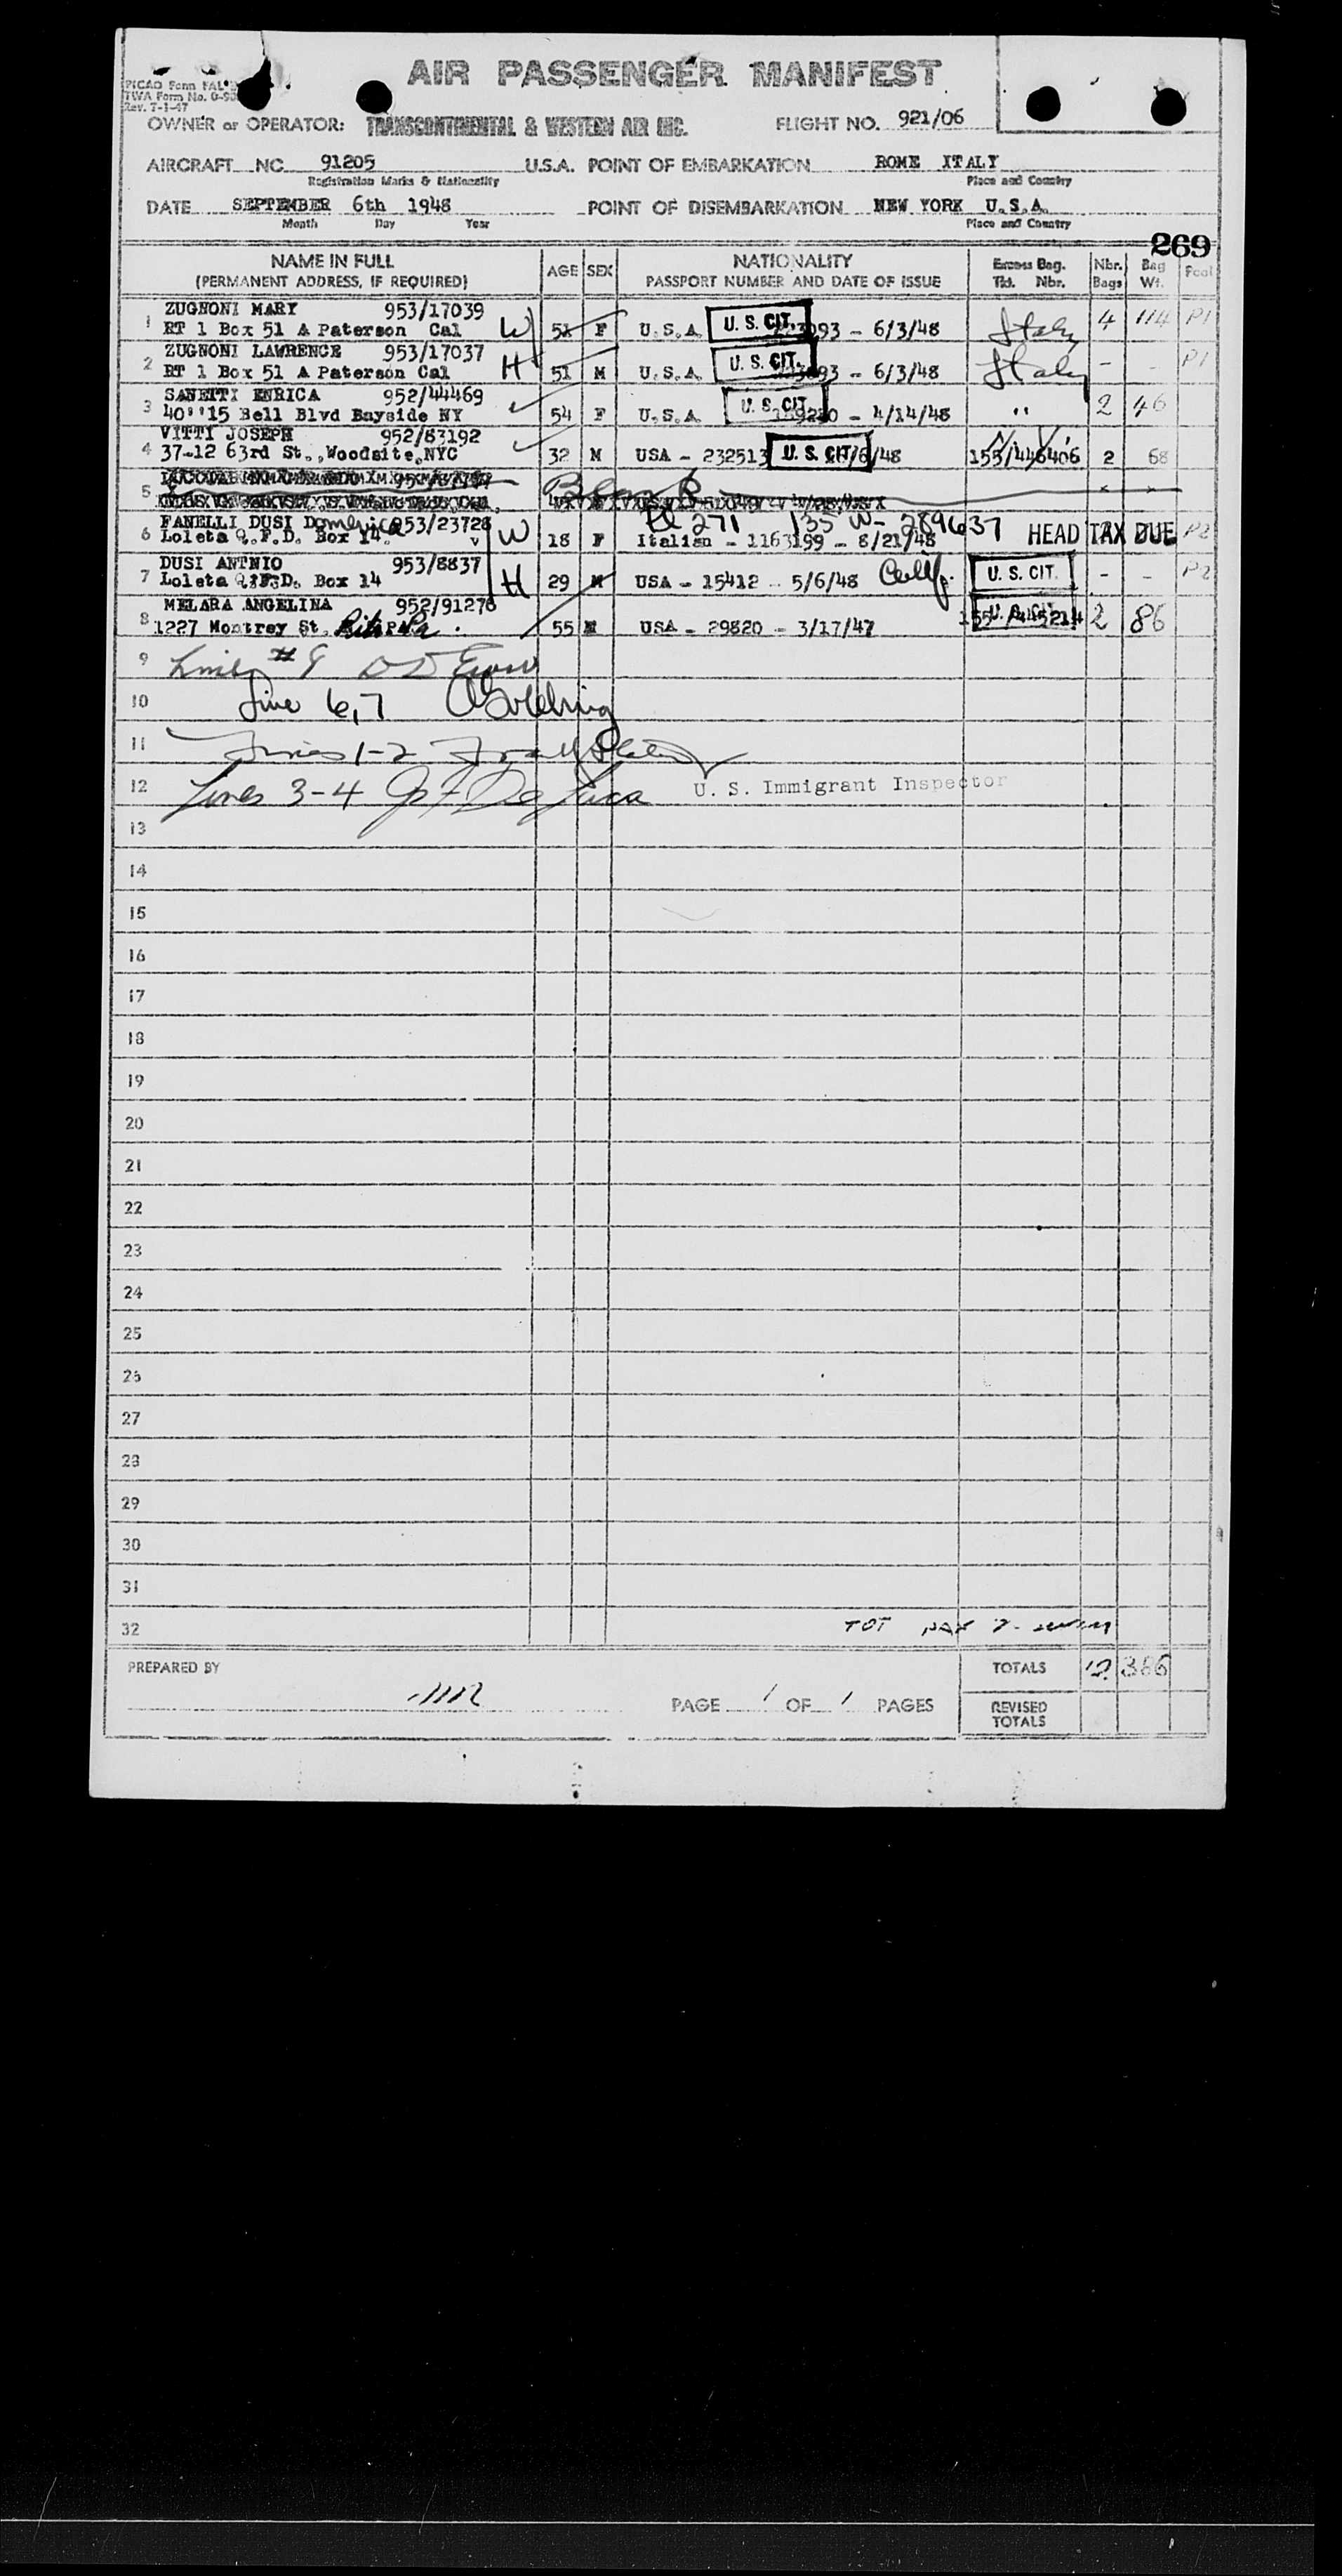 AIR PASSENGER MANIFEST
PICAO Form FAL
TWA Form No. O-
Rev. 7-1-47
OWNER or OPERATOR: TRANSCONTINENTAL & WESTERN AIR INC. FLIGHT NO. 921/06
AIRCRAFT NC 91205 U.S.A. POINT OF EMBARKATION ROME ITALY
Registration Marks & Nationality Place and Country
DATE SEPTEMBER 6th 1948 POINT OF DISEMBARKATION NEW YORK U.S.A.
Month Day Year Place and Country
269
NAME IN FULL AGE SEX NATIONALITY Excess Bag. Nbr. Bag
(PERMANENT ADDRESS, IF REQUIRED) PASSPORT NUMBER AND DATE OF ISSUE Tkt. Nbr. Bags Wt. Pool
ZUGNONI MARY 953/17039
1 RT 1 Box 51 A Paterson Cal W 51 F U.S.A. U. S. CIT. 093 - 6/3/48 Italy 4 114 P1
ZUGNONI LAWRENCE 953/17037
2 RT 1 Box 51 A Paterson Cal H 51 M U.S.A. U. S. CIT. 93 - 6/3/48 Italy - - P1
SANETTI ENRICA 952/44469
3 40''15 Bell Blvd Bayside NY 54 F U.S.A. U. S. CIT. - 4/14/48 '' 2 46
VITTI JOSEPH 952/83192
4 37-12 63rd St., Woodsite, NYC 32 M USA - 232513 U. S. CIT. /6/48 155/446406 2 68
5
FANELLI DUSI Domenica 953/23728 271 135 W- 289637
6 Loleta R.F.D. Box 14 W 18 F Italian - 1163199 - 8/21/48 HEAD TAX DUE P2
DUSI ANTNIO 953/8837
7 Loleta R.F.D. Box 14 H 29 M USA - 15412 - 5/6/48 Calif. U. S. CIT. - - P2
MELARA ANGELINA 952/91278
8 1227 Montrey St. 55 USA - 29820 - 3/17/47 U. S. CIT. 2 86
9
10 Line 6,7
11 Lines 1-2
12 Lines 3-4 De Luca U. S. Immigrant Inspector
13
14
15
16
17
18
19
20
21
22
23
24
25
26
27
28
29
30
31
32 TOT PAX 7 - seven
PREPARED BY TOTALS 12 386
PAGE 1 OF 1 PAGES REVISED
TOTALS